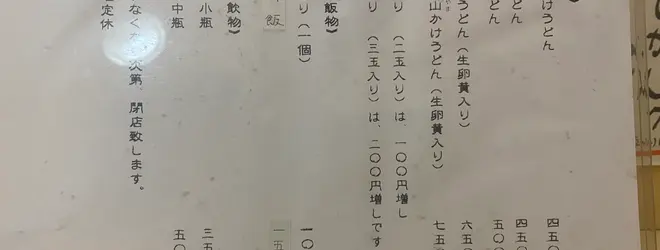 けうどん
四五〇
どん
四五〇
どん
五〇〇
うどん（生卵黄入り）
六五
山かけうどん（生卵黄入り）
七五
り（二玉入り）は、一〇〇円増し
り（三玉入り）は、二〇〇円増しです
飯物》
り（一個）
一〇
飯
一五
飲物》
小瓶
三五
中瓶
五〇
なくな
次第、閉店致します。
定休